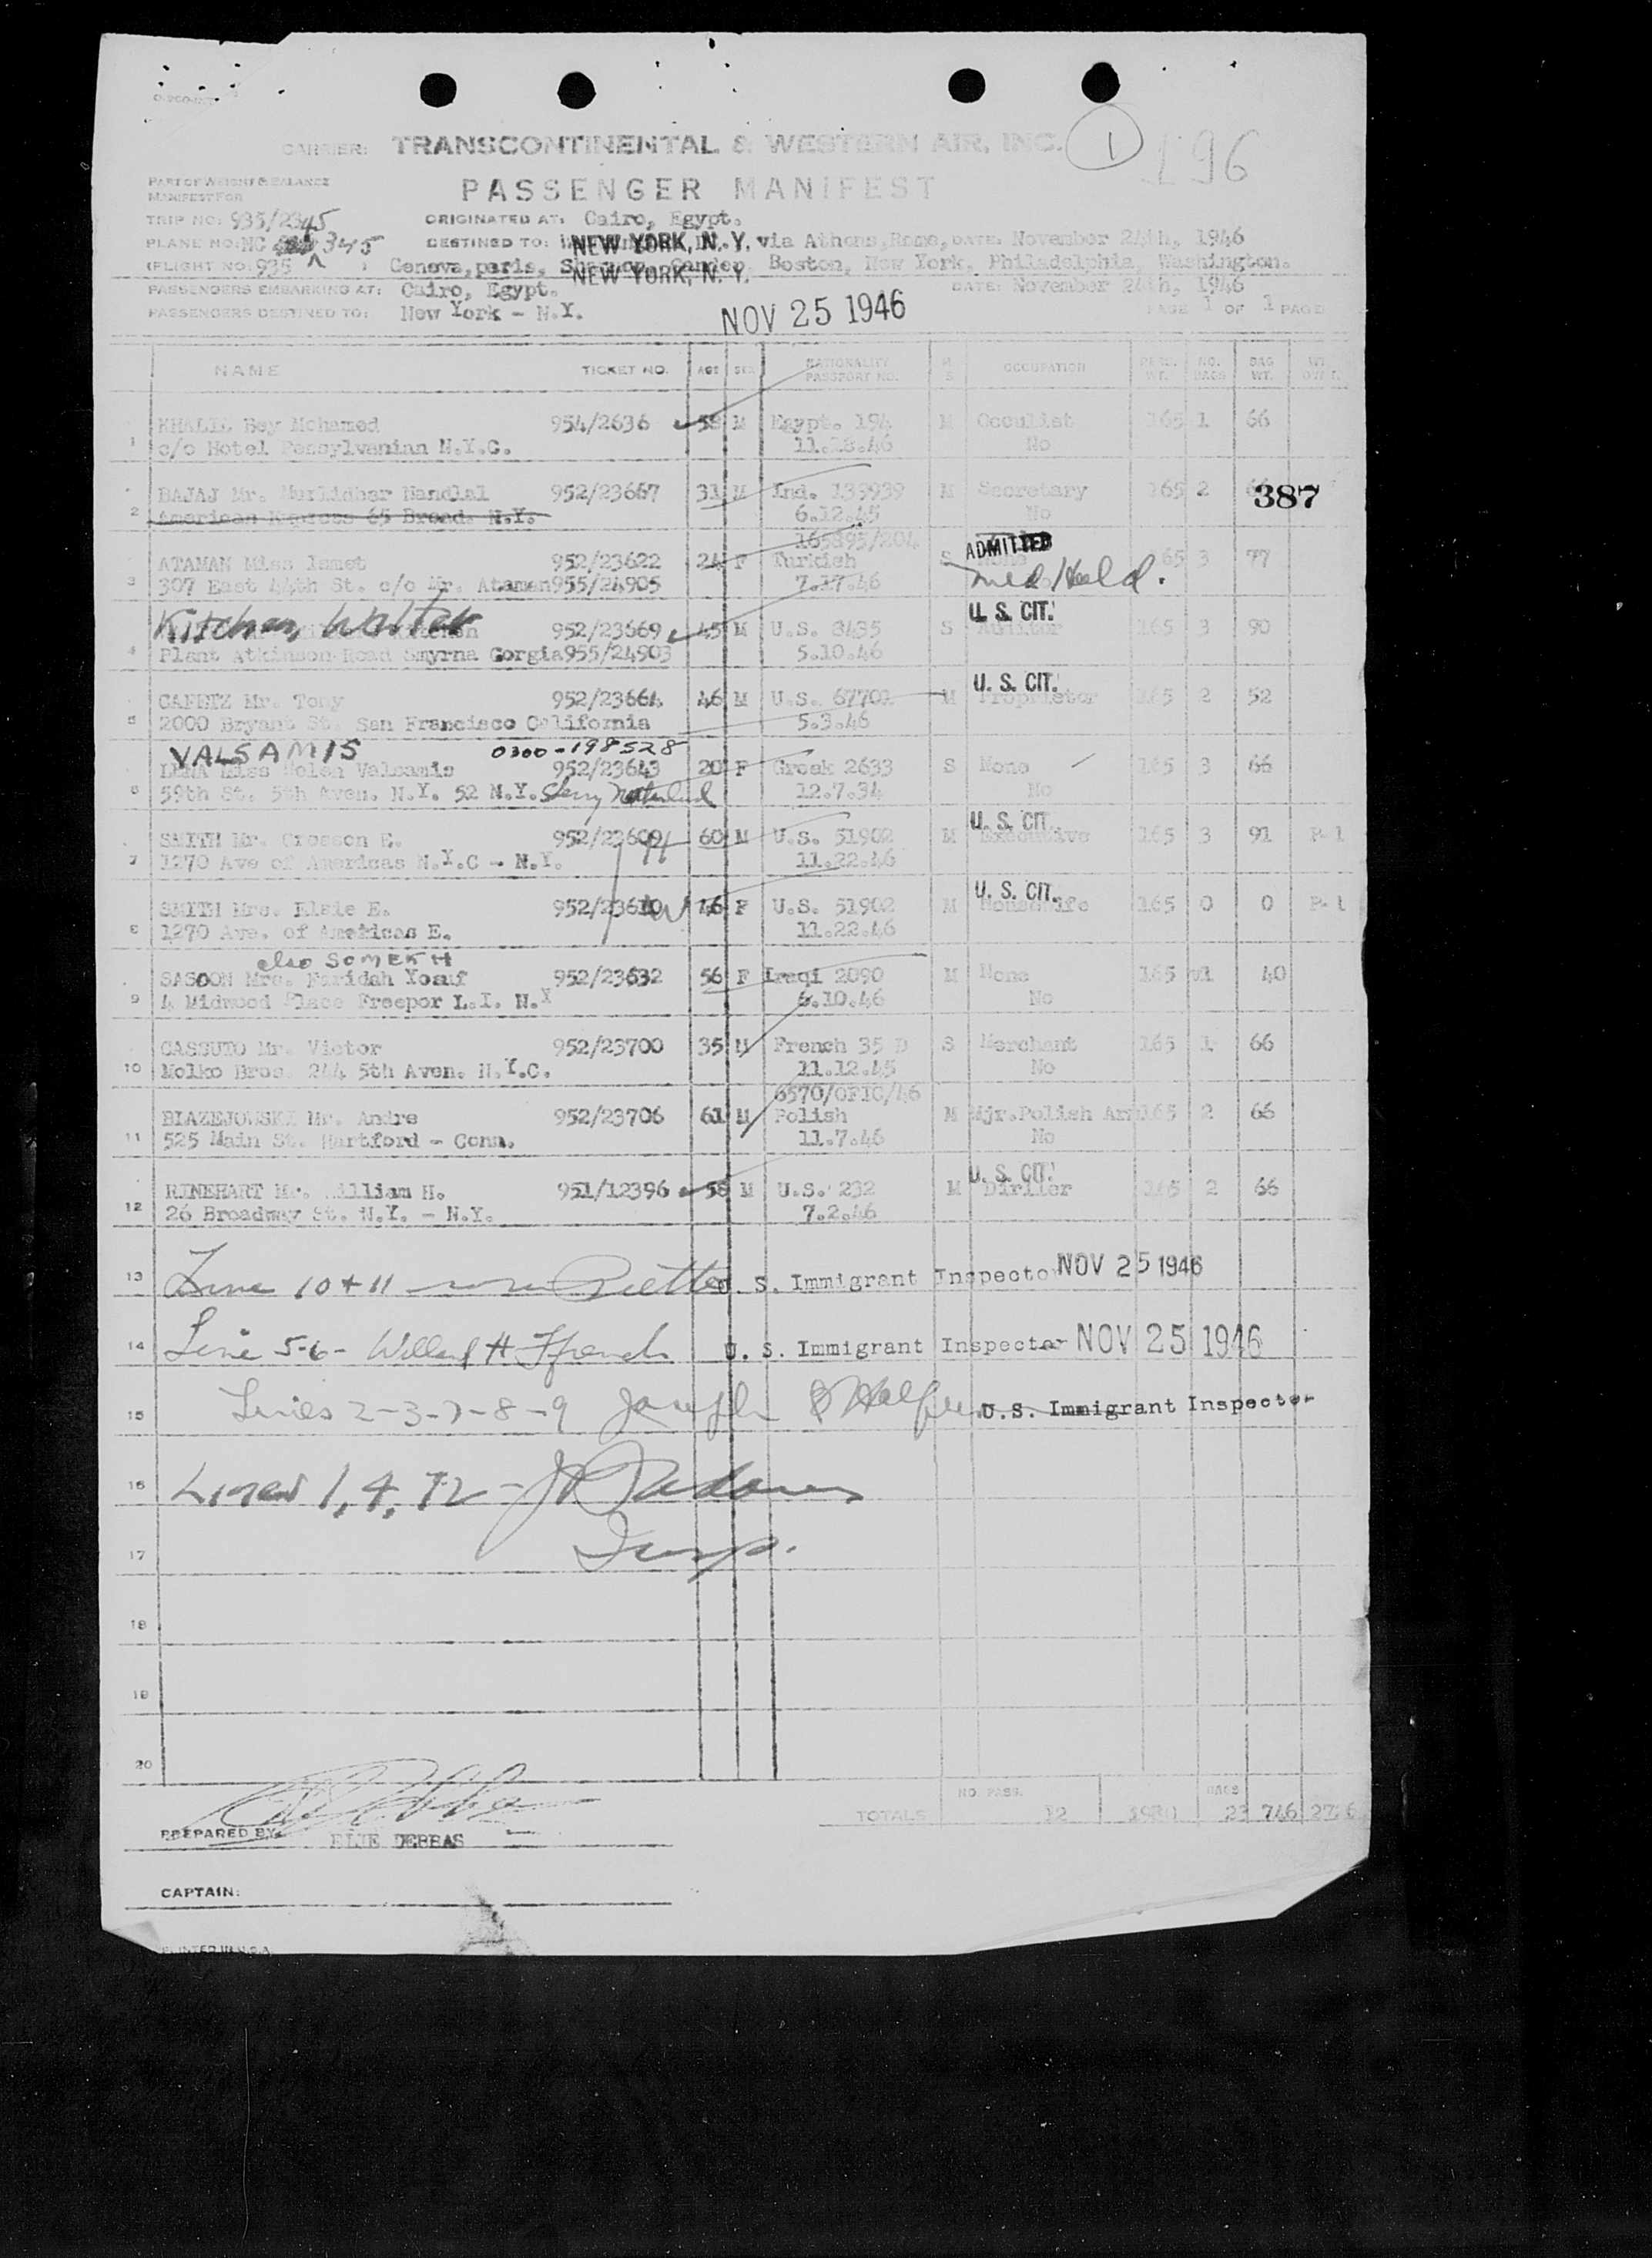 CARRIER: TRANSCONTINENTAL & WESTERN AIR, INC. 1 196
PART OF WEIGHT & BALANCE
MANIFEST FOR
PASSENGER MANIFEST
TRIP NO: 935/2345 ORIGINATED AT: Cairo, Egypt.
PLANE NO: NC 345 DESTINED TO: NEW YORK, N. Y. via Athens, Rome, DATE: November 24th, 1946
(FLIGHT NO: 935 ) Geneva, paris, Shannon, Gander, Boston, New York, Philadelphia, Washington.
NEW YORK, N. Y.
PASSENGERS EMBARKING AT: Cairo, Egypt. DATE: November 24th, 1946
PASSENGERS DESTINED TO: New York - N.Y. NOV 25 1946 PAGE 1 OF 1 PAGE
NAME TICKET NO. AGE SEX NATIONALITY PASSPORT NO. M S OCCUPATION PERS. WT. NO. BAGS BAG WT.
KHALIL Bey Mohamed 954/2636 58 M Egypt. 194 M Occulist 165 1 66
1 c/o Hotel Pensylvanian N.Y.C. 11.18.46 No
BAJAJ Mr. Murlidhar Nandlal 952/23667 31 M Ind. 139939 M Secretary 165 2 387
2 American Express 65 Broad. N.Y. 6.12.45 No
165895/204 ADMITTED
ATAMAN Miss Ismet 952/23622 24 F Turkish S None 165 3 77
3 307 East 44th St. c/o Mr. Ataman 955/24905 7.17.46 Med Held.
Kitchen, Walter 952/23669 45 M U.S. 3435 S U. S. CIT. Auditor 165 3 90
4 Plant Atkinson Road Smyrna Gorgia 955/24903 5.10.46
CAFETZ Mr. Tony 952/23664 46 M U.S. 67701 M U. S. CIT. Proprietor 165 2 52
5 2000 Bryant St. San Francisco California 5.3.46
VALSAMIS 0300-198528
LENA Miss Helen Valsamis 952/23643 20 F Greek 2633 S None 165 3 66
6 59th St. 5th Aven. N.Y. 52 N.Y. Sherry Netherland 12.7.34 No
SMITH Mr. Crosson E. 952/23609 60 M U.S. 51902 M U. S. CIT. Executive 165 3 91 P-1
7 1270 Ave of Americas N.Y.C - N.Y. 11.22.46
SMITH Mrs. Elsie E. 952/23610 46 F U.S. 51902 M U. S. CIT. Housewife 165 0 0 P-1
8 1270 Ave. of Americas E. 11.22.46
also SOMEKH
SASOON Mrs. Faridah Yosuf 952/23632 56 F Iraqi 2090 M None 165 1 40
9 4 Midwood Place Freepor L.I. N.Y 6.10.46 No
CASSUTO Mr. Victor 952/23700 35 M French 35 D S Merchant 165 1 66
10 Molko Bros. 244 5th Aven. N.Y.C. 11.12.45 No
6570/OFIC/46
BIAZEJOWSKI Mr. Andre 952/23706 61 M Polish M Mjr.Polish Arm 165 2 66
11 525 Main St. Hartford - Conn. 11.7.46 No
RINEHART Mr. William H. 951/12396 58 M U.S. 232 M U. S. CIT. 165 2 66
12 26 Broadway St. N.Y. - N.Y. 7.2.46
13 Line 10 + 11 U. S. Immigrant Inspector NOV 25 1946
14 Line 5-6- Willard H Ffrench U. S. Immigrant Inspector NOV 25 1946
15 Lines 2-3-7-8-9 Joseph U.S. Immigrant Inspector
16 Lines 1, 4, 12 -
17 Insp.
18
19
20
NO. PASS. BAGS
TOTALS 12 1980 23 746
PREPARED BY: ELIE DEBBAS
CAPTAIN:
PRINTED IN U.S.A.